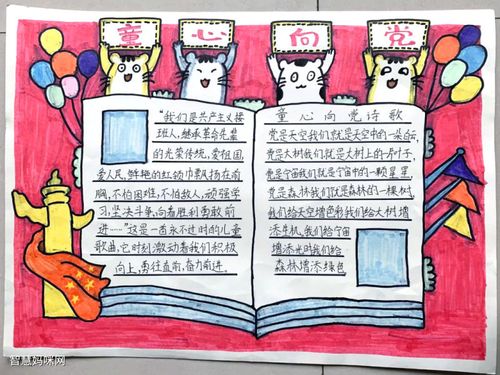 童心向党
"我们是共产主义接
班人,继承革命先辈
的光荣传统,爱祖国,
爱人民,鲜艳的红领巾飘扬在前
胸,不怕困难,不怕敌人,顽强学
习,坚决斗争,向着胜利勇敢前
进……"这是一首永不过时的儿童
歌曲,它时刻激动着我们积极
向上,勇往直前,奋力前进.
童心向党诗歌
党是天空我们就是天空中的一朵白云,
党是大树我们就是大树上的一片叶子,
党是宇宙我们就是宇宙中的一颗星星
党是森林我们就是森林的一棵树,
我们给天空增色彩我们给大树增
添生机,我们给宇宙
增添光时我们给
森林增添绿色
智慧妈咪网